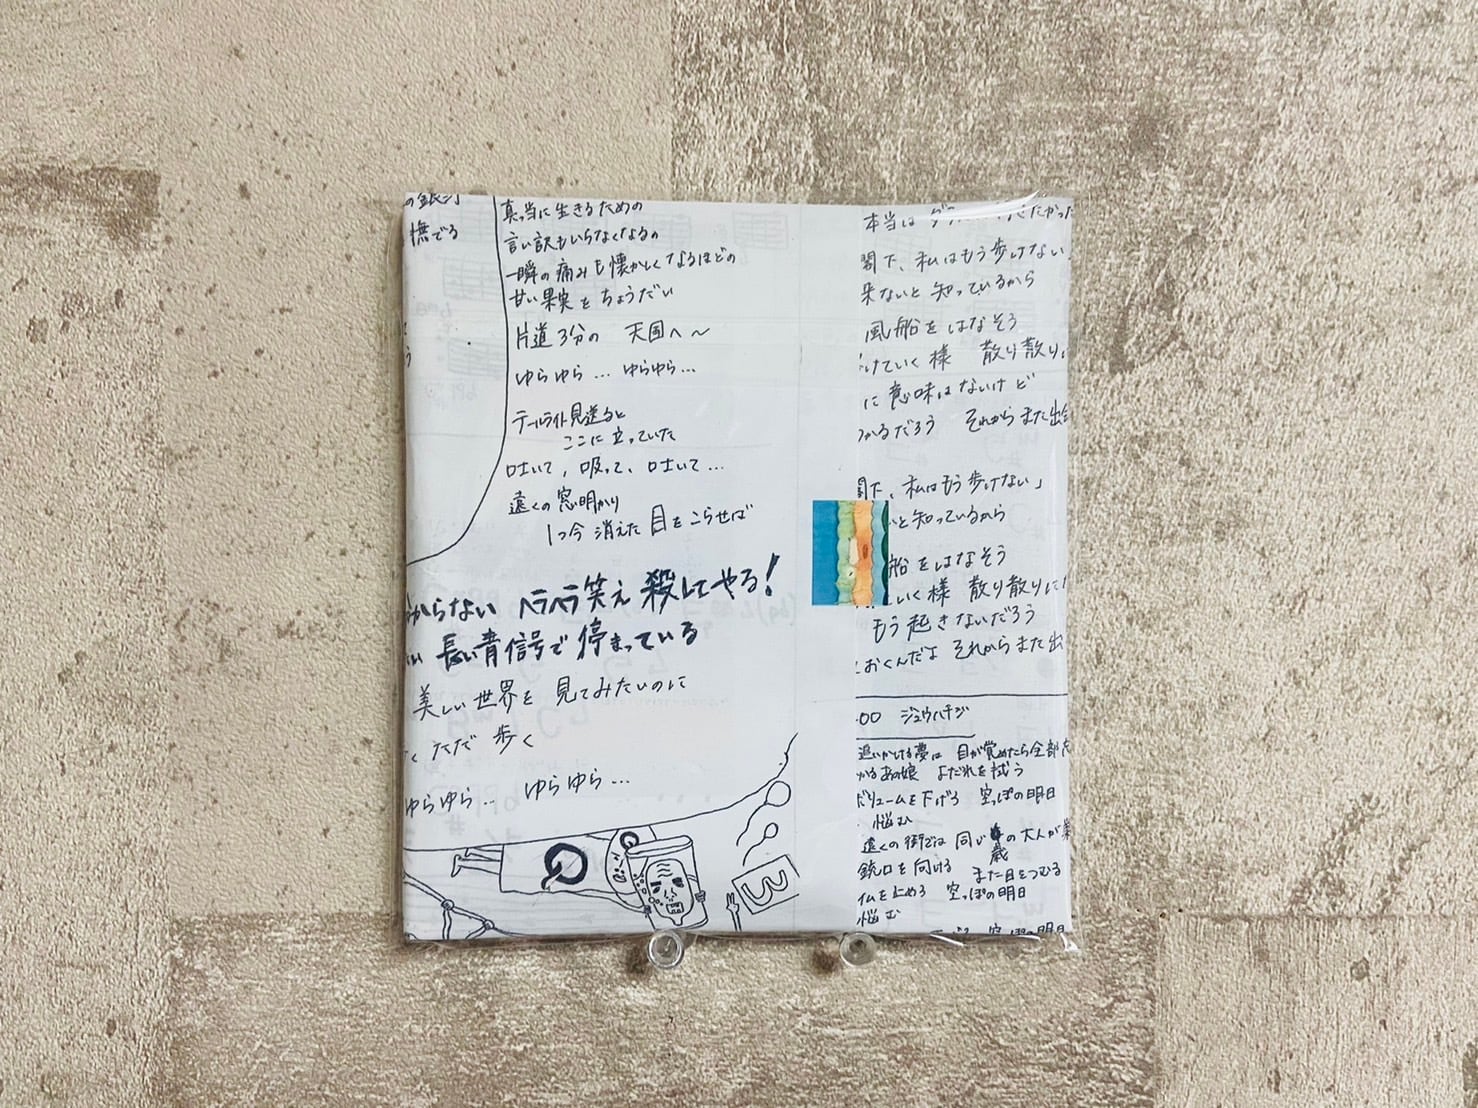 の銀河
撫でる
真っ当に生きるための
言い訳もいらなくなるの
一瞬の痛みも懐かしくなるほどの
甘い果実をちょうだい
片道3分の 天国へ〜
ゆらゆら… ゆらゆら…
テールライト見送ると
ここに立っていた
吐いて、吸って、吐いて…
遠くの窓明かり
1つ今消えた 目をこらせば
からない ヘラヘラ笑え 殺してやる!
長い青信号で停まっている
美しい世界を 見てみたいのに
く ただ 歩く
ゆらゆら… ゆらゆら…
Q
B
本当は
たかった
閣下、私はもう歩けない」
来ないと知っているから
風船をはなそう
けていく様 散り散りに
に意味はないけど
つかるだろう それからまた出会
閣下、私はもう歩けない」
いと知っているから
船をはなそう
いく様 散り散りに
もう起きないだろう
おくんだよ それからまた出
00 ジュウハチジ
追いかける夢は 目が覚めたら全部
かるあの娘 よだれを拭う
ボリュームを下げろ 空っぽの明日
悩む
遠くの街では 同じ歳の大人が
銃口を向ける また目をつむる
仏を止めろ 空っぽの明日
悩む
空っぽの明日